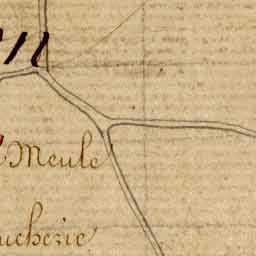 Meule
ucherie